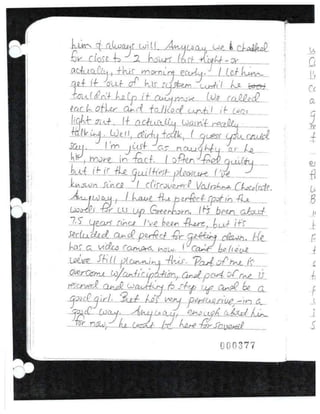 him & always will. Anyway we chatted
for close to 2 hours last night - or
actually, this morning early. I let him
get it out of his system until he
couldn't help it anymore. We called
each other and talked until it was
light out. It actually wasn't really
talking. Well, dirty talk, I guess you could
say. I'm just as naughty as he
is, more in fact. I often feel guilty
but it is the guiltiest pleasure I've
known since I discovered Valrohna Chocolate.
Anyway, I have the perfect spot in the
woods for us up Greenhorn. It's been about
7.5 years since I've been there, but it's
secluded and perfect for getting down. He
has a video camera now. I can't believe
we're still planning this. Part of me is
overcome w/anticipation, and part of me is
reserved and wanting to step up and be a
good girl. But he's very persuasive - in a
good way. Anyway, enough about him
for now, he won't be here for several
000377